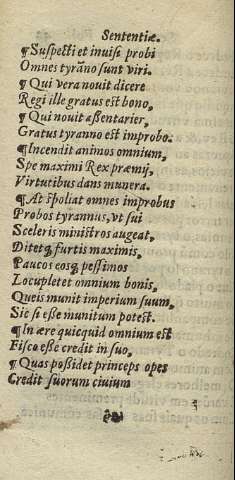 Sententiæ.
¶ Suspecti et inuisi probi
Omnes tyrãno sunt viri.
¶ Qui vera nouit dicere
Regi ille gratus est bono,
¶ Qui nouit aßentarier,
Gratus tyranno est improbo.
¶ Incendit animos omnium,
Spe maximi Rex præmij,
Virtutibus dans munera.
¶ At spoliat omnes improbus
Probos tyrannus, vt sui
Sceleris ministros augeat,
Ditetq; furtis maximis,
Paucos eosq; peßimos
Locupletet omnium bonis,
Queis munit imperium suum,
Sic si eße munitum potest.
¶ In ære quicquid omnium est
Fisco eße credit in suo,
¶ Quas poßidet princeps opes
Credit suorum ciuium